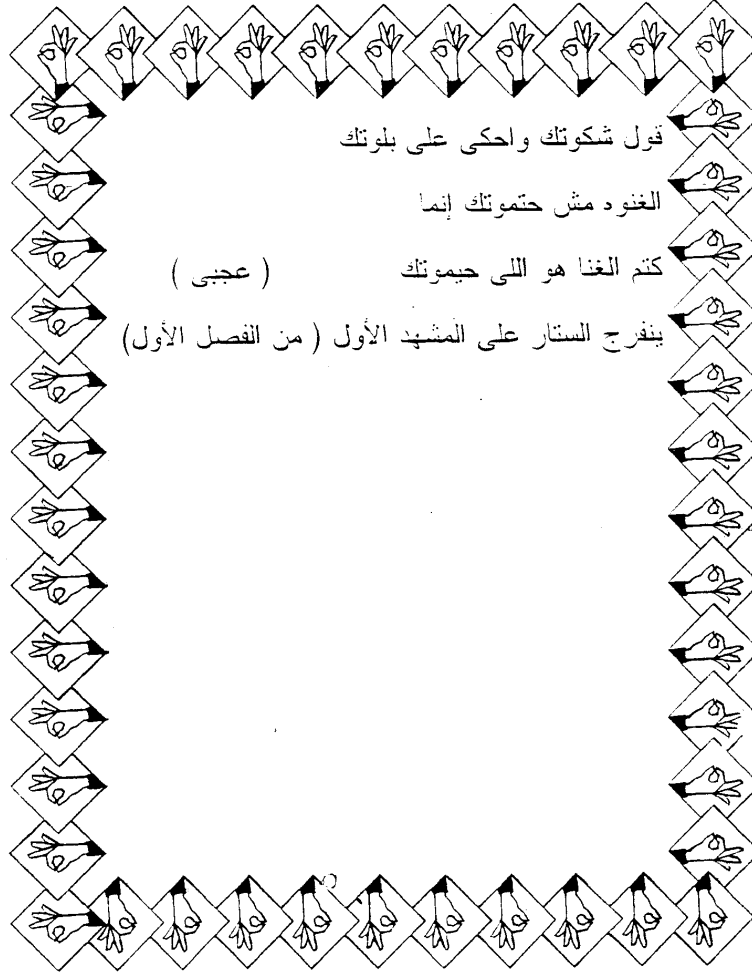 قول شكوتك واحكى على بلوتك
الغنوه مش حتموتك إنما
كتم الغنا هو اللى حيموتك ( عجبى )
ينفرج الستار على المشهد الأول ( من الفصل الأول)